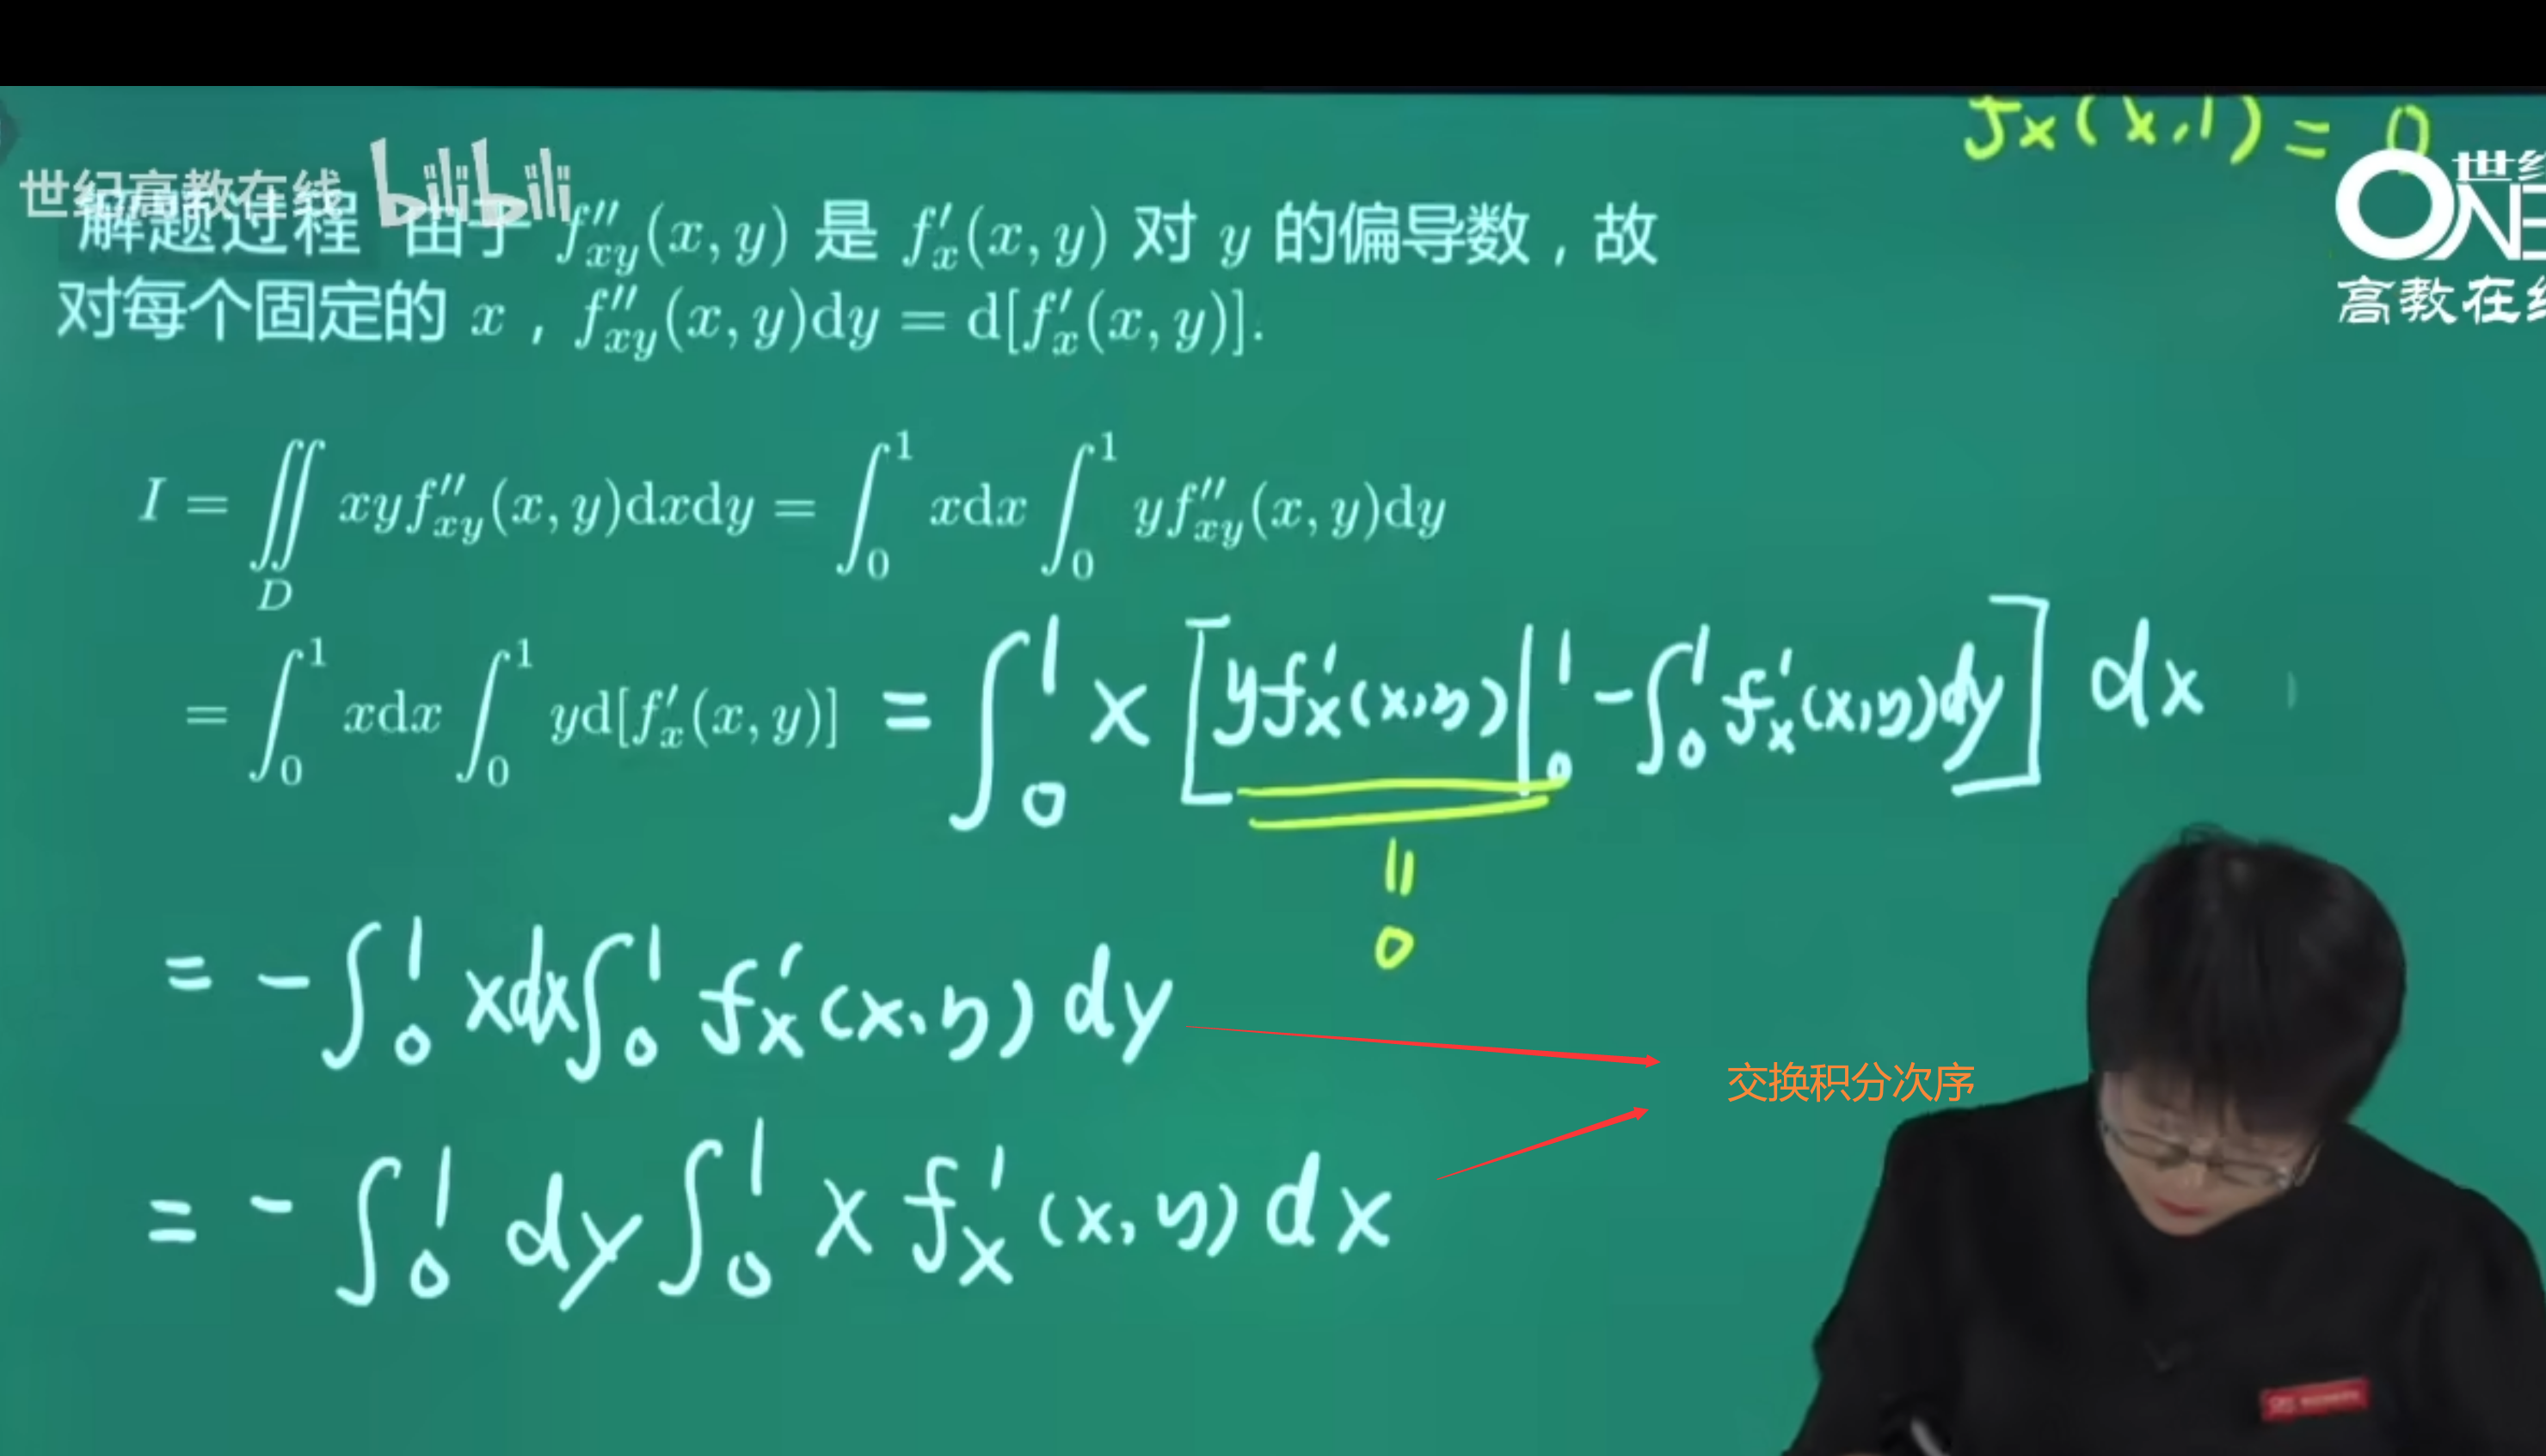 fx(x,1) = 0
世纪高教在线 bilibili
ONE
高教在
解题过程 由于 f''_{xy}(x, y) 是 f'_x(x, y) 对 y 的偏导数，故
对每个固定的 x，f''_{xy}(x, y)dy = d[f'_x(x, y)].
I = ∬_D xyf''_{xy}(x, y)dxdy = ∫_0^1 xdx ∫_0^1 yf''_{xy}(x, y)dy
= ∫_0^1 xdx ∫_0^1 yd[f'_x(x, y)] = ∫_0^1 x [yf'_x(x,y)|_0^1 - ∫_0^1 f'_x(x,y)dy] dx
= 0
= - ∫_0^1 xdx ∫_0^1 f'_x(x,y) dy
交换积分次序
= - ∫_0^1 dy ∫_0^1 x f'_x(x,y) dx